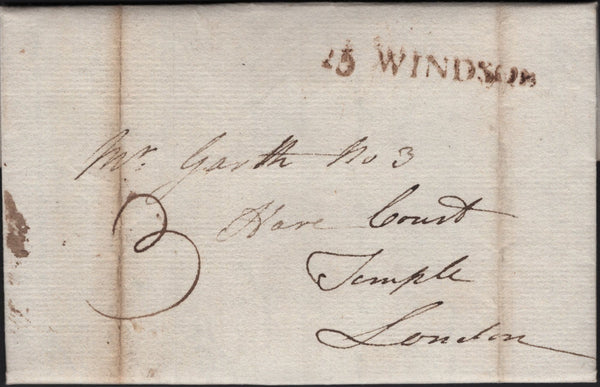 25 WINDSOR
Mr. Garth No 3
3
Hare Court
Temple
London